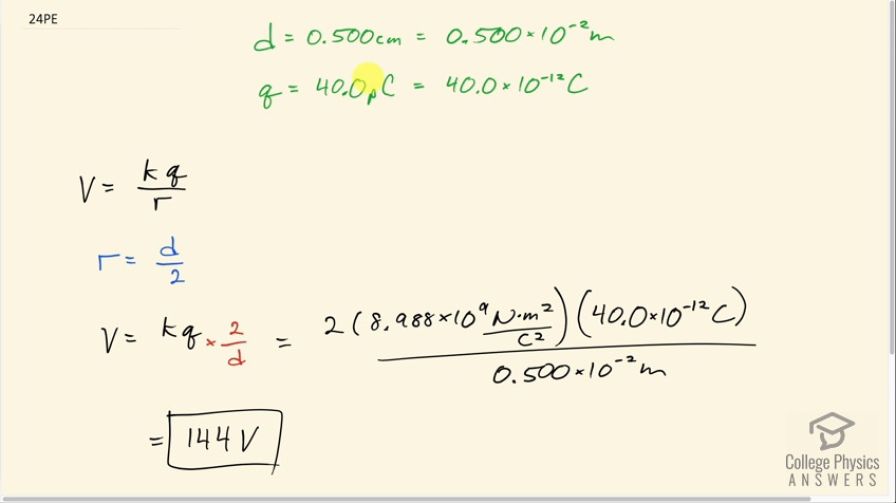 24PE
d = 0.500cm = 0.500×10⁻²m
q = 40.0pC = 40.0×10⁻¹²C
V = kq/r
r = d/2
V = kq × 2/d = 2(8.988×10⁹ N·m²/C²)(40.0×10⁻¹²C) / 0.500×10⁻²m
= 144V
College Physics
ANSWERS